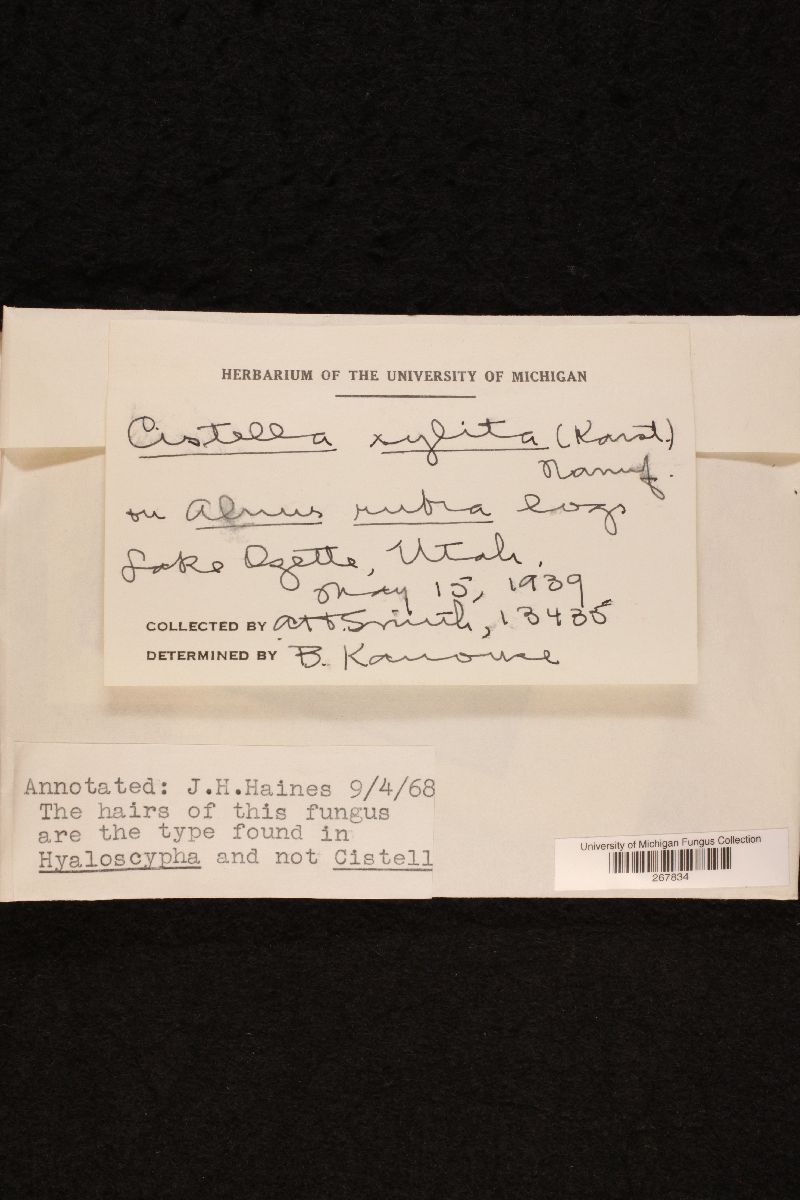 HERBARIUM OF THE UNIVERSITY OF MICHIGAN
Cistella xylita (Karst.)
Nannf.
on Alnus rubra logs
Lake Ozette, Utah,
May 15, 1939
COLLECTED BY AH Smith, 13435
DETERMINED BY B. Kanouse
Annotated: J.H.Haines 9/4/68
The hairs of this fungus
are the type found in
Hyaloscypha and not Cistell
University of Michigan Fungus Collection
267834